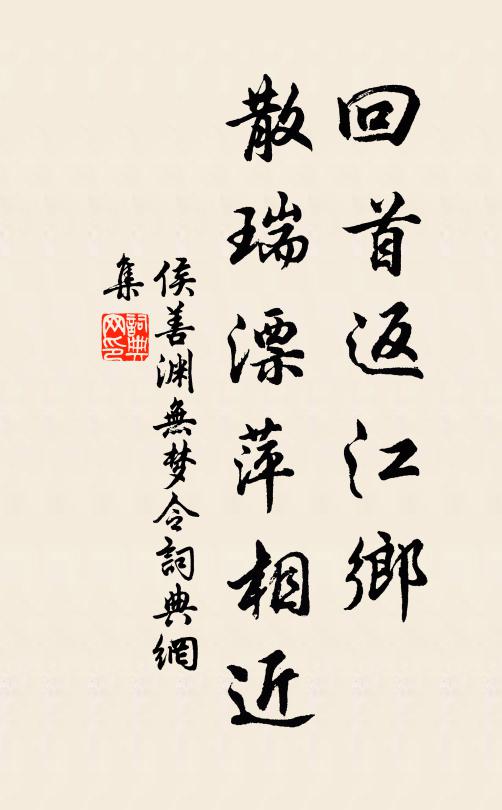 回首返江鄉
散瑞漂萍相近
侯善渊無梦令詞典網
集
詞典
网印